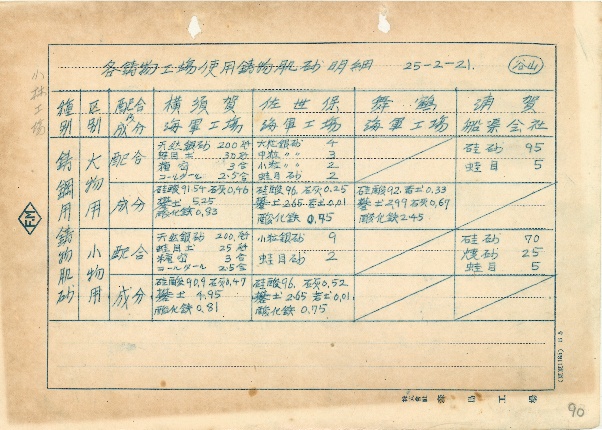 各鋳物工場使用鋳物肌砂明細 25-2-21. 谷山
小林工場
種別 区別 配合及成分 横須賀海軍工場 佐世保海軍工場 舞鶴海軍工場 浦賀船渠会社
鋳鋼用鋳物肌砂
大物用 配合
天然銀砂 200
30
3合
コールタール 2.5合
大粒銀砂 4
中粒〃〃 3
小粒〃〃 2
蛙目砂 2
硅砂 95
蛙目 5
成分
硅酸91.54 石灰0.46
礬土 5.25
酸化鉄0.83
硅酸96. 石灰0.25
礬土2.65 苦土0.01
酸化鉄 0.75
硅酸92. 苦土0.33
礬土2.99 石灰0.67
酸化鉄2.45
小物用 配合
天然銀砂 200.
蛙目土 25
3合
コールタール 2.5合
小粒銀砂 9
蛙目砂 2
硅砂 70
25
蛙目 5
成分
硅酸90.9 石灰0.47
礬土 4.95
酸化鉄0.81
硅酸96. 石灰0.52
礬土2.65 苦土0.01
酸化鉄0.75
FM
株式会社
工
90